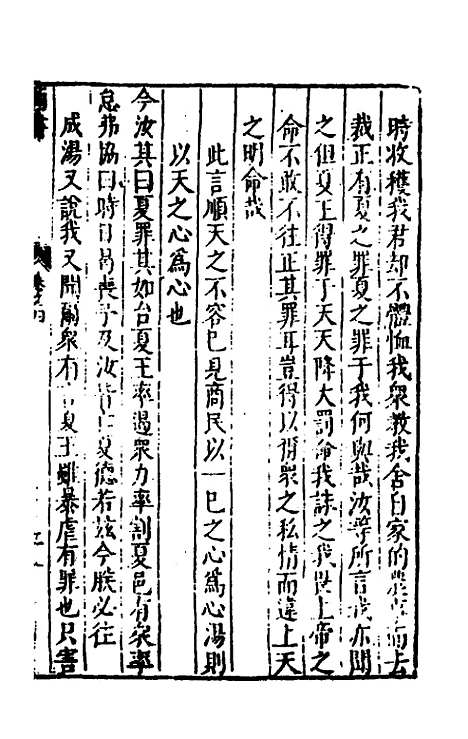 時收穫我君却不體恤我衆教我舍自家的農事而去
裁正有夏之罪夏之罪于我何與哉汝等所言我亦聞
之但夏王得罪于天天降大罰命我誅之我畏上帝之
命不敢不往正其罪耳豈得以徇衆之私情而違上天
之明命哉
此言順天之不容已見商民以一已之心爲心湯則
以天之心爲心也
今汝其曰夏罪其如台夏王率遏衆力率割夏邑有衆率
怠弗協曰時日曷喪予及汝皆亡夏德若茲今朕必往
成湯又說我又聞爾衆有言夏王雖暴虐有罪也只害